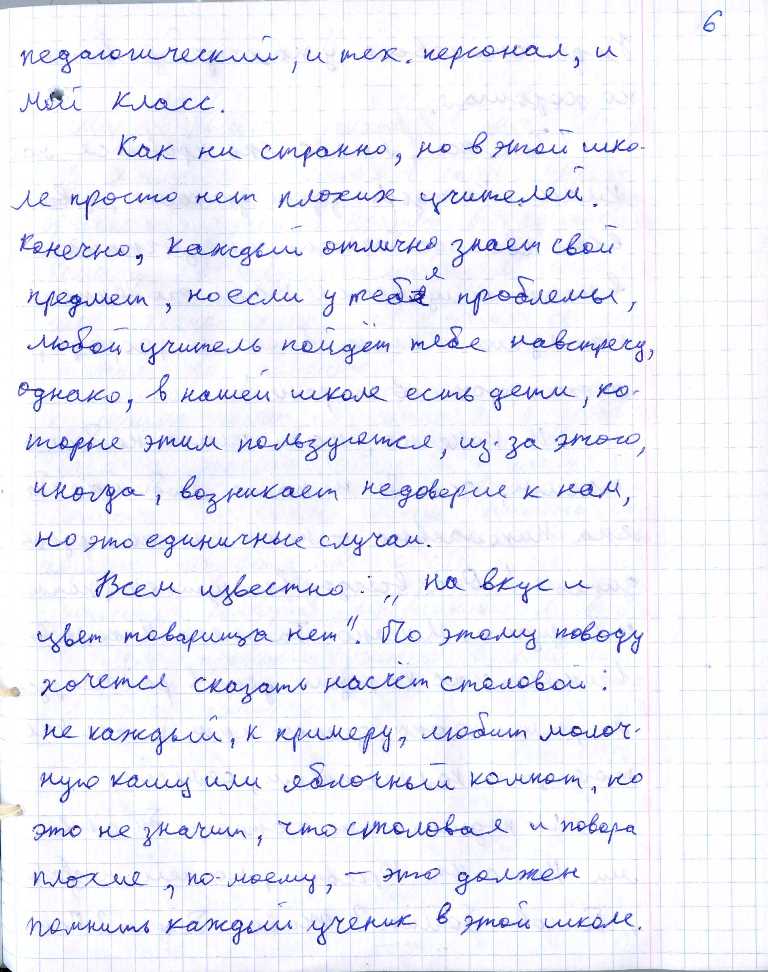 6
педагогический, и тех. персонал, и
мой класс.
Как ни странно, но в этой шко-
ле просто нет плохих учителей.
Конечно, каждый отлично знает свой
предмет, но если у тебя проблемы,
любой учитель пойдёт тебе навстречу,
однако, в нашей школе есть дети, ко-
торые этим пользуются, из-за этого,
иногда, возникает недоверие к нам,
но это единичные случаи.
Всем известно: „На вкус и
цвет товарища нет". По этому поводу
хочется сказать насчёт столовой:
не каждый, к примеру, любит молоч-
ную кашу или яблочный компот, но
это не значит, что столовая и повара
плохие, по-моему, – это должен
помнить каждый ученик в этой школе.